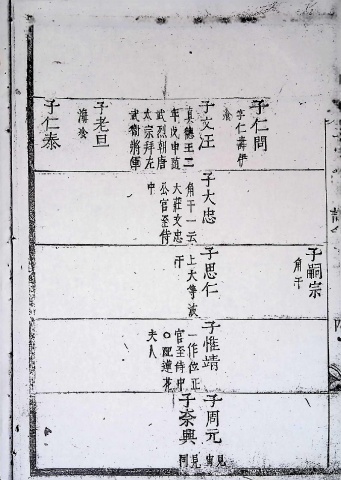 子仁問
字仁壽伊
飡
子文汪
真德王二
年戊申
武烈朝唐
太宗拜左
武衛將軍
子老旦
海飡
子仁泰
子大忠
角干一云
大莊文忠
公官至侍
中
子思仁
上大等波
干
子嗣宗
角干
子惟靖
一作位正
官至侍中
配蓮花
夫人
子周元
見
子奈興
見